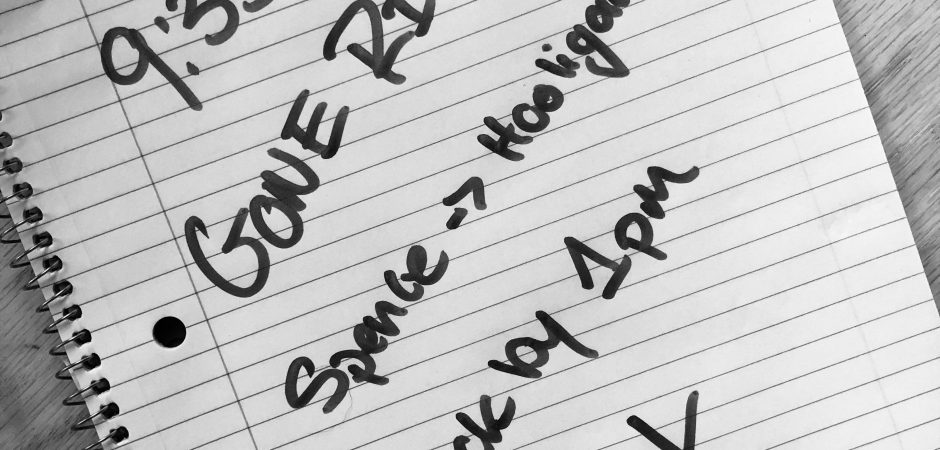 9:35
GONE
Spence -> Hooligan
by 1pm